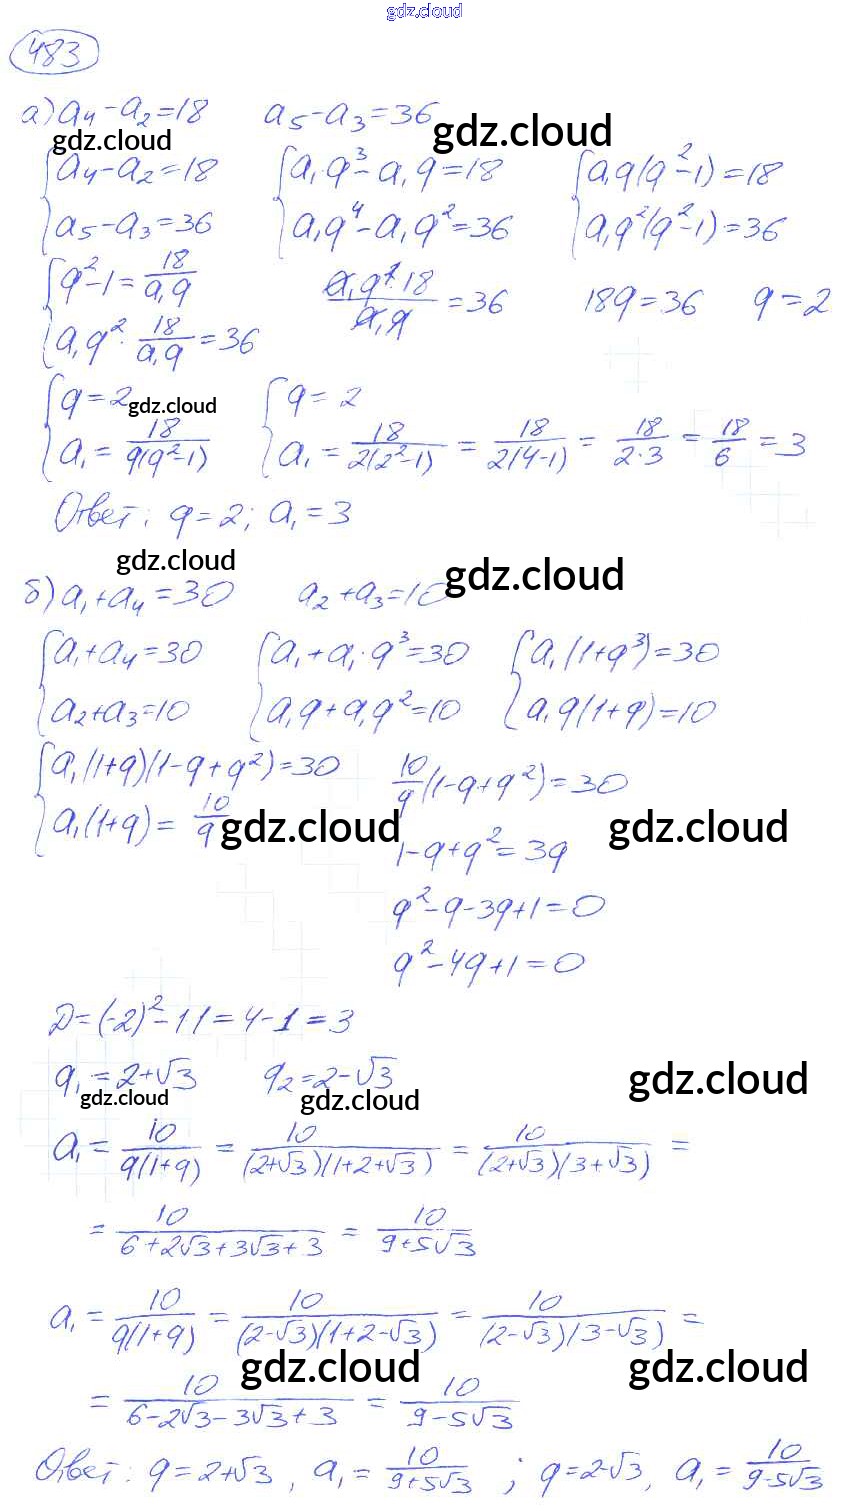 gdz.cloud
483
а) a₄ - a₂ = 18   a₅ - a₃ = 36
gdz.cloud   gdz.cloud
{a₄ - a₂ = 18   {a₁q³ - a₁q = 18   {a₁q(q² - 1) = 18
{a₅ - a₃ = 36   {a₁q⁴ - a₁q² = 36   {a₁q²(q² - 1) = 36
{q² - 1 = 18/(a₁q)   (a₁q² · 18)/(a₁q) = 36   18q = 36   q = 2
{a₁q² · 18/(a₁q) = 36
{q = 2   {q = 2
gdz.cloud
{a₁ = 18/(q(q² - 1))   {a₁ = 18/(2(2² - 1)) = 18/(2(4 - 1)) = 18/(2·3) = 18/6 = 3
Ответ: q = 2; a₁ = 3
gdz.cloud   gdz.cloud
б) a₁ + a₄ = 30   a₂ + a₃ = 10
{a₁ + a₄ = 30   {a₁ + a₁·q³ = 30   {a₁(1 + q³) = 30
{a₂ + a₃ = 10   {a₁q + a₁q² = 10   {a₁q(1 + q) = 10
{a₁(1 + q)(1 - q + q²) = 30   10/q (1 - q + q²) = 30
{a₁(1 + q) = 10/q
gdz.cloud   gdz.cloud
1 - q + q² = 3q
q² - q - 3q + 1 = 0
q² - 4q + 1 = 0
D = (-2)² - 1·1 = 4 - 1 = 3
q₁ = 2 + √3   q₂ = 2 - √3
gdz.cloud   gdz.cloud   gdz.cloud
a₁ = 10/(q(1 + q)) = 10/((2 + √3)(1 + 2 + √3)) = 10/((2 + √3)(3 + √3)) =
= 10/(6 + 2√3 + 3√3 + 3) = 10/(9 + 5√3)
a₁ = 10/(q(1 + q)) = 10/((2 - √3)(1 + 2 - √3)) = 10/((2 - √3)(3 - √3)) =
gdz.cloud   gdz.cloud
= 10/(6 - 2√3 - 3√3 + 3) = 10/(9 - 5√3)
Ответ: q = 2 + √3, a₁ = 10/(9 + 5√3); q = 2 - √3, a₁ = 10/(9 - 5√3)